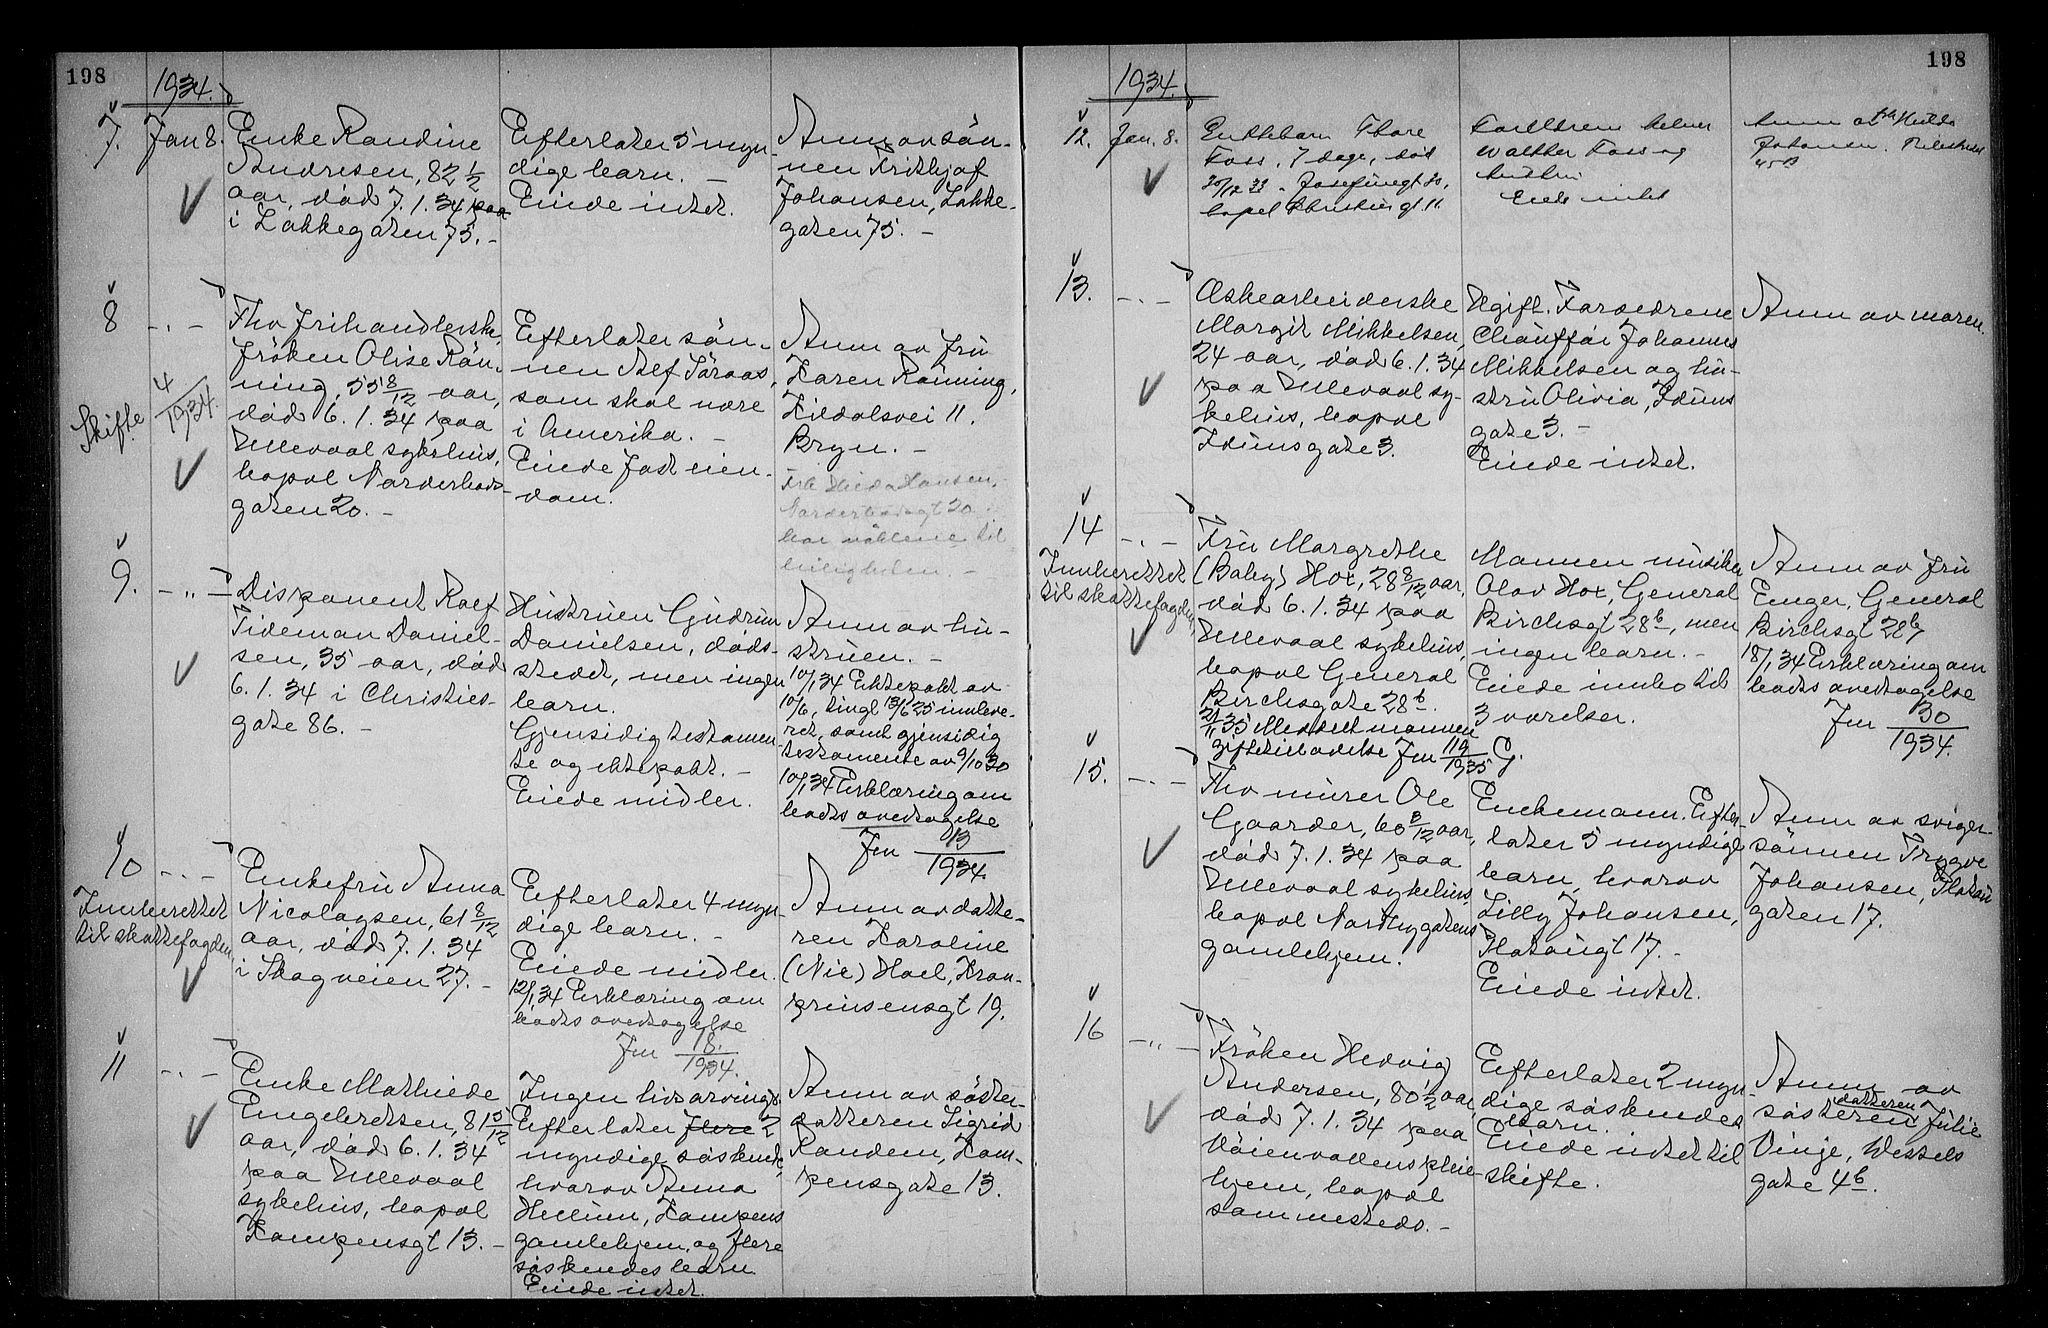 198
1934.
7.
Jan 8.
Enke Randine
Andresen, 82 1/2
aar, död 7.1.34 paa
i Lakkegaten 75. -
Efterlater 5 myn-
dige barn. -
Eiede intet.
Anm. av sön-
nen Frithjof
Johansen, Lakke-
gaten 75. -
8
- . -
Skifte
4/1934
Fhv frihandlerske,
fröken Olise Rön-
ning, 55 8/12 aar,
död 6.1.34 paa
Ullevaal sykehus,
bopol Norderhovs-
gaten 20. -
Efterlater søn-
nen Alf
som skal være
i Amerika. -
Eiede fast eien-
dom.
Anm av fru
Karen Rönning,
11.
Bryn. -
Hansen,
Norderhovsgt 20
har nöklene til
leiligheten. -
9.
- " -
Disponent Rolf
Tideman Daniel-
sen, 35 aar, död
6.1.34 i Christies-
gate 86. -
Hustruen Gudrun
Danielsen, döds-
stedet, men ingen
barn.
Gjensidig testamen-
te og ektepakt. -
Eiede midler.
Anm av hu-
struen. -
10/1 34 Ektepakt av
10/6, tingl 13/6 25 innleve-
ret, samt gjensidig
testamente av 9/10 30
10/1 34 Erklæring om
boets overtagelse
Jnr 13/1934.
10
- . -
Innberettet
til skattefogden
Enkefru Anna
Nicolaysen, 61 8/12
aar, död 7.1.34
i Skogveien 27. -
Efterlater 4 myn-
dige barn. -
Eiede midler.
12/1 34 Erklæring om
boets overtagelse
Jnr 18./1934.
Anm av datte-
ren Karoline
(Nic) Hoel, Kron-
prinsensgt 19.
11
- . -
Enke Mathilde
Engebretsen, 81 5/12
aar, död 6.1.34
paa Ullevaal
sykehus, bopol
Kampensgt 13. -
Ingen livsarvinge
Efterlater flere 2
myndige söskende,
hvorav Anna
Hellum, Kampens
gamlehjem, og flere
söskendes barn
Eiede intet.
Anm av söster-
datteren Sigrid
Randem, Kam-
pensgate 13.
198
1934.
12.
Jan. 8.
Enkebarn Thore
Foss, 7 dage, död
30/12 33 -
bopel
Walther Foss og
hustru
Eiede intet
Anm av frk Hulda
Johansen.
13.
- . -
Æskearbeiderske
Margit Mikkelsen,
24 aar, död 6.1.34
paa Ullevaal sy-
kehus, bopol
Idunsgate 3.
Ugift. Forældrene
Chauffør Johannes
Mikkelsen og hu-
stru Olivia, Iduns
gate 3. -
Eiede intet.
Anm av moren.
14
- . -
Innberettet
til skattefogden
Fru Margrethe
(Baby) Hox, 28 8/12 aar,
död 6.1.34 paa
Ullevaal sykehus,
bopol General
Birchsgate 28b.
21/1 35 Meddelt mannen
giftetilladelse Jnr 119/1935 G.
Mannen musiker
Olav Hox, General
Birchsgt 28b, men
ingen barn. -
Eiede innbo til
3 værelser.
Anm av fru
Enger, General
Birchsgt 28b
18/1 34 Erklæring om
boets overtagelse
Jnr 30/1934.
15.
- . -
Fhv murer Ole
Gaarder, 60 8/12 aar,
död 7.1.34 paa
Ullevaal sykehus,
bopol Nordbygatens
gamlehjem.
Enkemann. Efter-
later 5 myndige
barn, hvorav
Lilly Johansen,
Platougt 17. -
Eiede intet.
Anm av sviger-
sönnen Trygve
Johansen, Platou
gaten 17.
16
- " -
Fröken Hedvig
Andersen, 80 1/2 aar,
död 7.1.34 paa
Vöienvollens pleie-
hjem, bopol
sammesteds. -
Efterlater 2 myn-
dige söskendes
barn.
Eiede intet til
skifte.
Anm av
datteren
sösteren Julie
Vinje, Wessels
gate 4b.